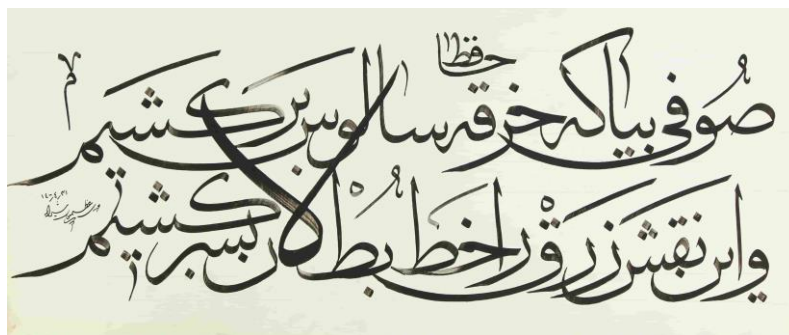 حافظ
صوفی بیا که خرقه سالوس برکشیم
واین نقش زرق را خط بُطلان بسر کشیم